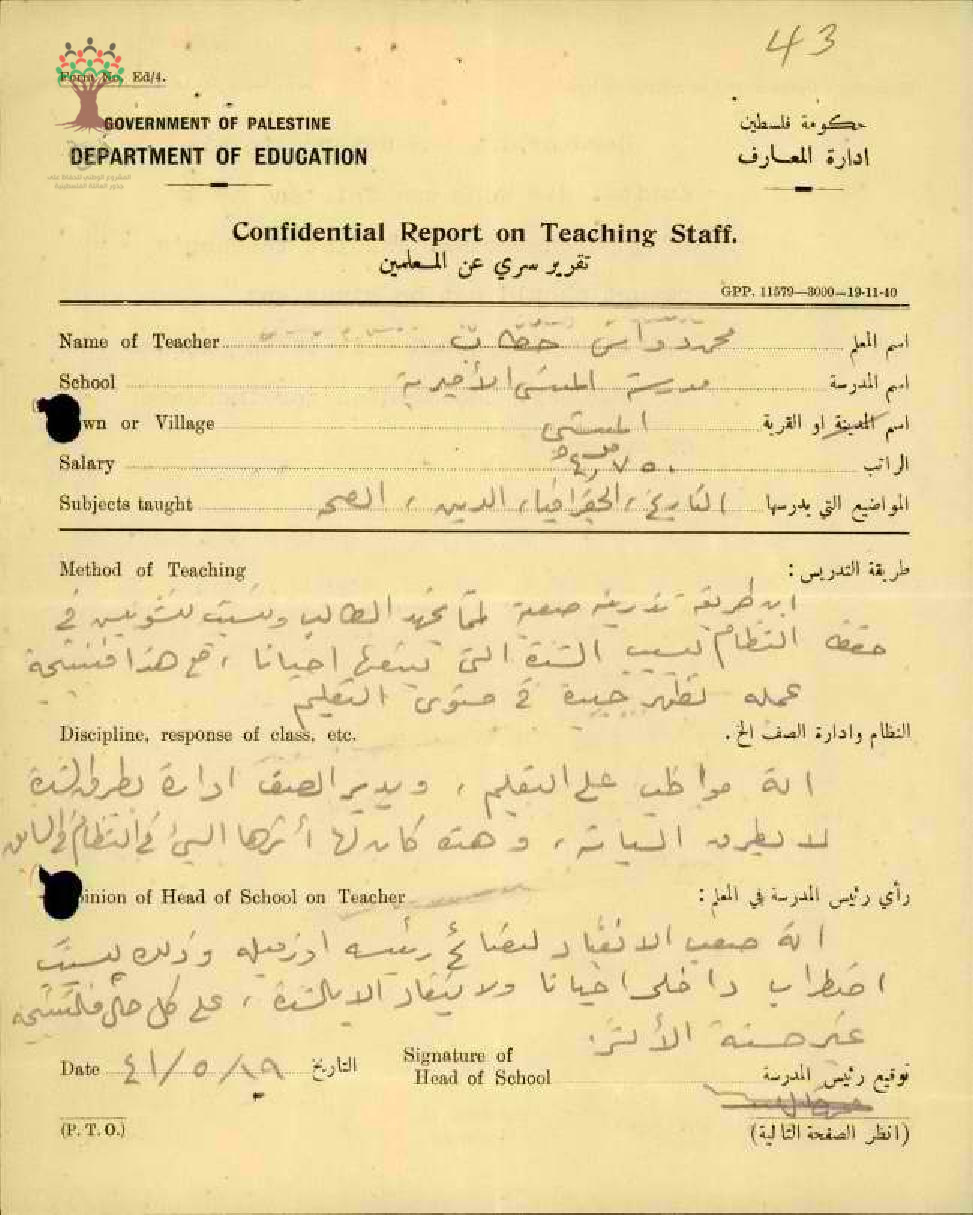 43
Form No. Ed/4.
GOVERNMENT OF PALESTINE
حكومة فلسطين
DEPARTMENT OF EDUCATION
ادارة المعارف
Confidential Report on Teaching Staff.
تقرير سري عن المعلمين
GPP. 11579—3000—19-11-40
Name of Teacher محمد اسم المعلم
School مدرسة الأميرية اسم المدرسة
wn or Village اسم المدينة او القرية
Salary الراتب
Subjects taught التاريخ، الجغرافيا، الدين، الصحه المواضيع التي يدرسها
Method of Teaching طريقة التدريس:
ان طريقة تدريسه صعبة الطالب في
حفظ النظام بسبب الشدة التي يتبعها احيانا، مع هذا فنتيجة
عمله تظهر جيدة في مستوى التعليم
Discipline, response of class, etc. النظام وادارة الصف الخ.
انه مواظب على التعليم، ويدير الصف ادارة بطرق الشدة
لا بطرق، وهذه كان لها أثرها السيئ في النظام في
inion of Head of School on Teacher رأي رئيس المدرسة في المعلم:
انه صعب الانقياد لنصائح رئيسه او زميله وذلك بسبب
اضطراب داخلي احيانا ولا ينقاد الا بالشدة، على كل حال فالنتيجة
غير حسنة الأثر.
Date ١٩/٥/٤١ التاريخ Signature of Head of School توقيع رئيس المدرسة
(P. T. O.) (انظر الصفحة التالية)